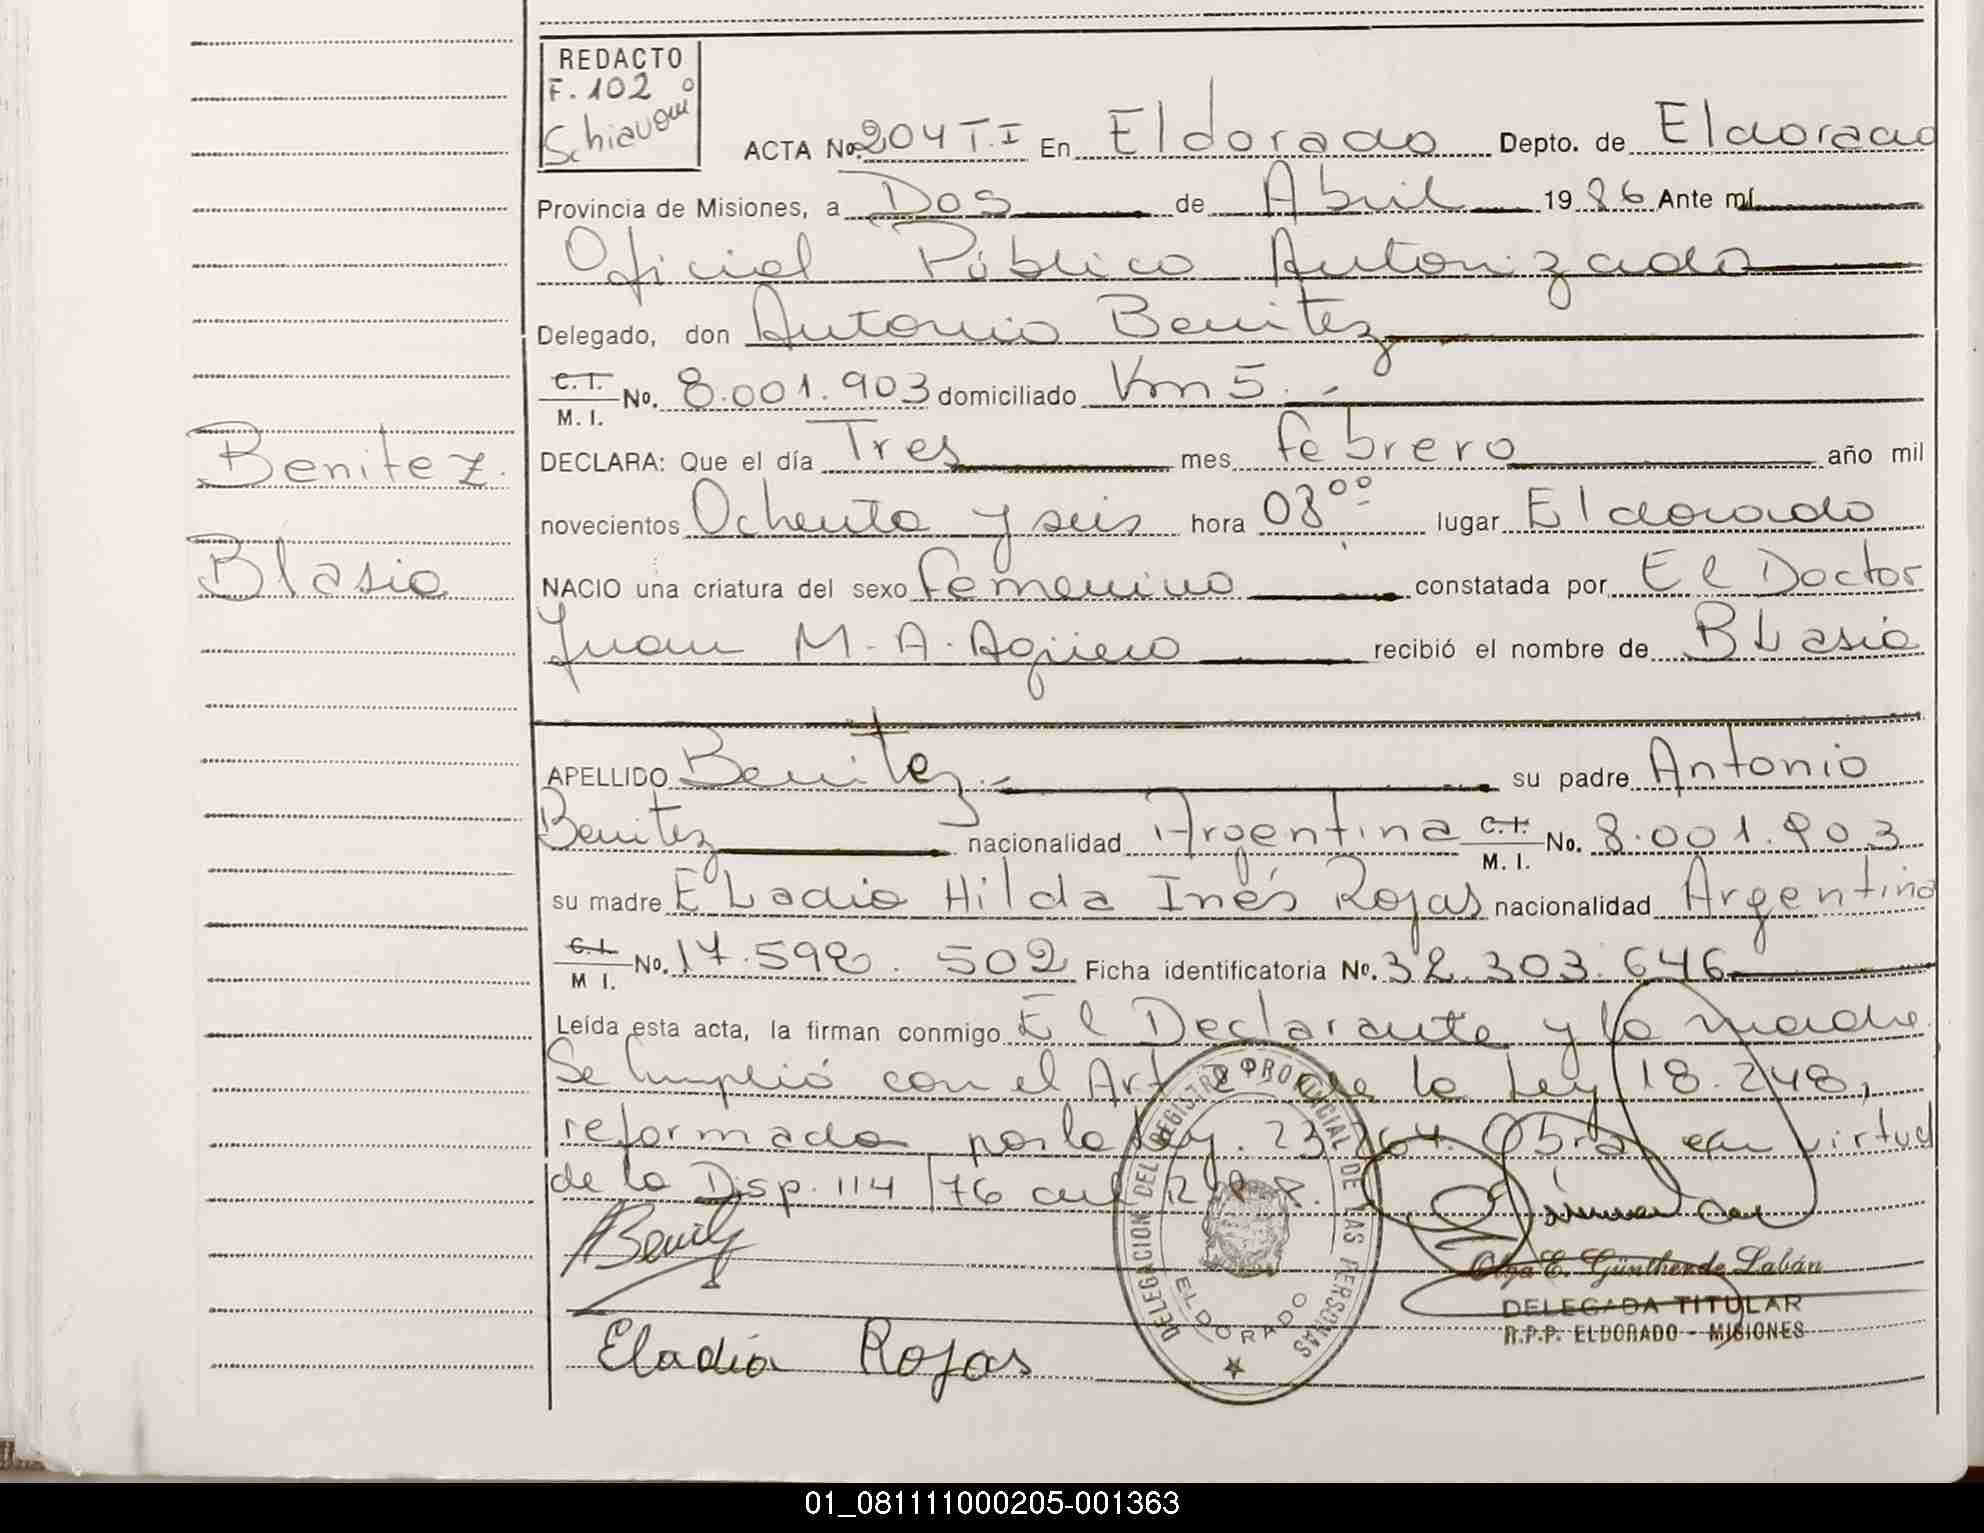 REDACTO
F. 102 o
Schiavoni
ACTA No. 204 T.I En Eldorado Depto. de Eldorado
Provincia de Misiones, a Dos de Abril 1986 Ante mí
Oficial Público Autorizado
Delegado, don Antonio Benitez
C.I. M.I. No. 8.001.903 domiciliado Km 5.-
Benitez.
DECLARA: Que el día Tres mes febrero año mil
novecientos Ochenta y seis hora 08⁰⁰ lugar Eldorado
Blasia
NACIO una criatura del sexo femenino constatada por El Doctor
Juan M. A. Agüero recibió el nombre de Blasia
APELLIDO Benitez.- su padre Antonio
Benitez nacionalidad Argentina C.I. M.I. No. 8.001.903
su madre Eladia Hilda Inés Rojas nacionalidad Argentina
C.I. M I. No. 17.592.502 Ficha identificatoria No. 32.303.646
Leída esta acta, la firman conmigo El Declarante y la madre
Se cumplió con el Art 2 de la Ley 18.248,
reformada por la Ley. 23.264. Obra en virtud
de la Disp. 114/76 del R.P.P.
ABenitez
Eladia Rojas
DELEGACION DEL REGISTRO PROVINCIAL DE LAS PERSONAS
ELDORADO
Olga E. Günther de Labán
DELEGADA TITULAR
R.P.P. ELDORADO - MISIONES
01_081111000205-001363